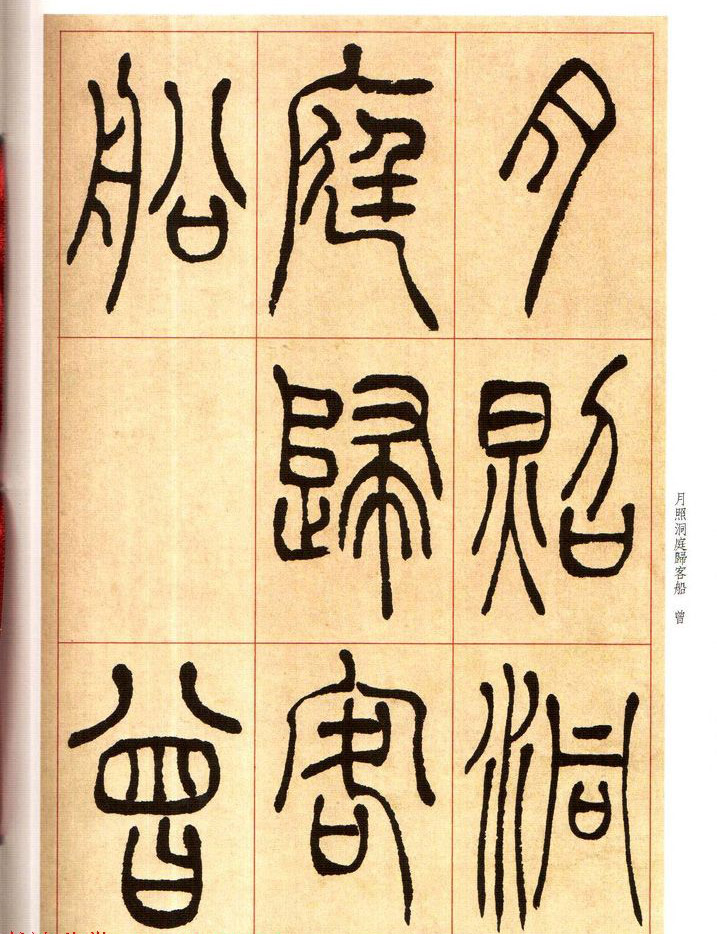 月照洞
庭歸客
船 曾
月照洞庭歸客船 曾